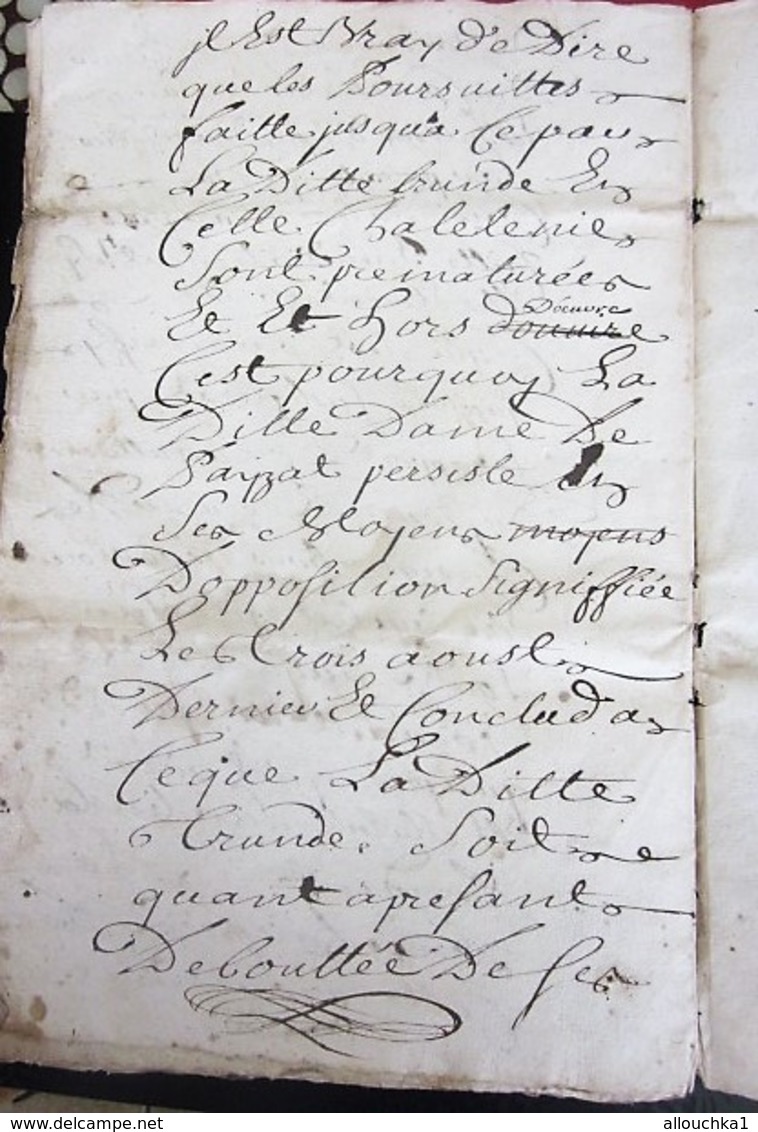 jl Est Vray de Dire
que les Poursuittes
faitte jusqua Ce par
La Ditte trunde En
Celle Chatelenie
Sont prematurées
Et Et hors douvure Doeuvre
C'est pourquoy La
Ditte Dame De
persiste En
Ses Moyens moyens
Dopposition Signiffiée
Le Trois aoust
Dernier Et Conclud a
Ce que La Ditte
Trunde Soit
quant apresant
Debouttée De Ses
www.delcampe.net
allouchka1